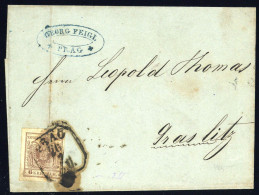 GEORG FEIGL
PRAG
Herrn Leopold Thomas
Graslitz
PRAG